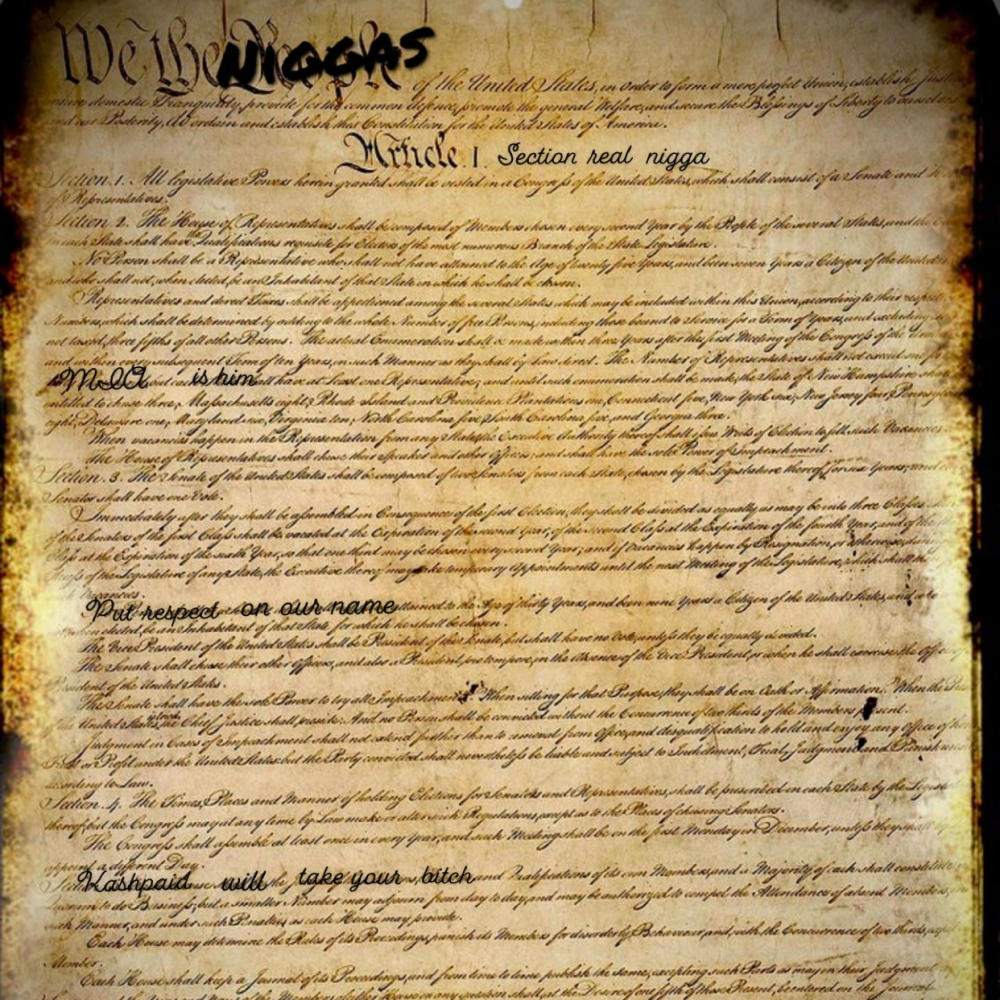 We the NIGGAS of the United States, in Order to form a more perfect Union, establish
domestic Tranquility, provide for the common defence, promote the general Welfare, and secure the Blessings of Liberty to ourselves
and our Posterity, do ordain and establish this Constitution for the United States of America.
Article. I. Section real nigga
Section. 1. All legislative Powers herein granted shall be vested in a Congress of the United States, which shall consist of a Senate and
of Representatives.
Section 2. The House of Representatives shall be composed of Members chosen every second Year by the People of the several States, and the
in each State shall have the Qualifications requisite for Electors of the most numerous Branch of the State Legislature.
No Person shall be a Representative who shall not have attained to the Age of twenty five Years, and been seven Years a Citizen of the United
and who shall not, when elected, be an Inhabitant of that State in which he shall be chosen.
Representatives and direct Taxes shall be apportioned among the several States which may be included within this Union, according to their
Numbers, which shall be determined by adding to the whole Number of free Persons, including those bound to Service for a Term of Years, and excluding
not taxed, three fifths of all other Persons. The actual Enumeration shall be made within three Years after the first Meeting of the Congress of the
and within every subsequent Term of ten Years, in such Manner as they shall by Law direct. The Number of Representatives shall not exceed one for
is him shall have at Least one Representative; and until such enumeration shall be made, the State of New Hampshire
entitled to chuse three, Massachusetts eight, Rhode Island and Providence Plantations one, Connecticut five, New York six, New Jersey four,
eight, Delaware one, Maryland six, Virginia ten, North Carolina five, South Carolina five, and Georgia three.
When vacancies happen in the Representation from any State, the Executive Authority thereof shall issue Writs of Election to fill such Vacancies.
The House of Representatives shall chuse their Speaker and other Officers; and shall have the sole Power of Impeachment.
Section. 3. The Senate of the United States shall be composed of two Senators from each State, chosen by the Legislature thereof, for six Years; and
Senator shall have one Vote.
Immediately after they shall be assembled in Consequence of the first Election, they shall be divided as equally as may be into three Classes.
of the Senators of the first Class shall be vacated at the Expiration of the second Year, of the second Class at the Expiration of the fourth Year, and of the
Class at the Expiration of the sixth Year, so that one third may be chosen every second Year; and if Vacancies happen by Resignation, or otherwise,
Recess of the Legislature of any State, the Executive thereof may make temporary Appointments until the next Meeting of the Legislature, which shall
Vacancies.
Put respect on our name attained to the Age of thirty Years, and been nine Years a Citizen of the United States, and who
when elected, be an Inhabitant of that State for which he shall be chosen.
The Vice President of the United States shall be President of the Senate, but shall have no Vote, unless they be equally divided.
The Senate shall chuse their other Officers, and also a President pro tempore, in the Absence of the Vice President, or when he shall exercise the Office
President of the United States.
The Senate shall have the sole Power to try all Impeachments. When sitting for that Purpose, they shall be on Oath or Affirmation. When the
the United States, the Chief Justice shall preside: And no Person shall be convicted without the Concurrence of two thirds of the Members present.
Judgment in Cases of Impeachment shall not extend further than to removal from Office, and disqualification to hold and enjoy any Office of
Trust or Profit under the United States: but the Party convicted shall nevertheless be liable and subject to Indictment, Trial, Judgment and
according to Law.
Section. 4. The Times, Places and Manner of holding Elections for Senators and Representatives, shall be prescribed in each State by the
thereof; but the Congress may at any time by Law make or alter such Regulations, except as to the Places of chusing Senators.
The Congress shall assemble at least once in every Year, and such Meeting shall be on the first Monday in December, unless they shall
appoint a different Day.
Kashpaid will take your bitch and Qualifications of its own Members, and a Majority of each shall
to do Business; but a smaller Number may adjourn from day to day, and may be authorized to compel the Attendance of absent Members,
such Manner, and under such Penalties as each House may provide.
Each House may determine the Rules of its Proceedings, punish its Members for disorderly Behaviour, and, with the Concurrence of two thirds,
Member.
Each House shall keep a Journal of its Proceedings, and from time to time publish the same, excepting such Parts as may in their Judgment